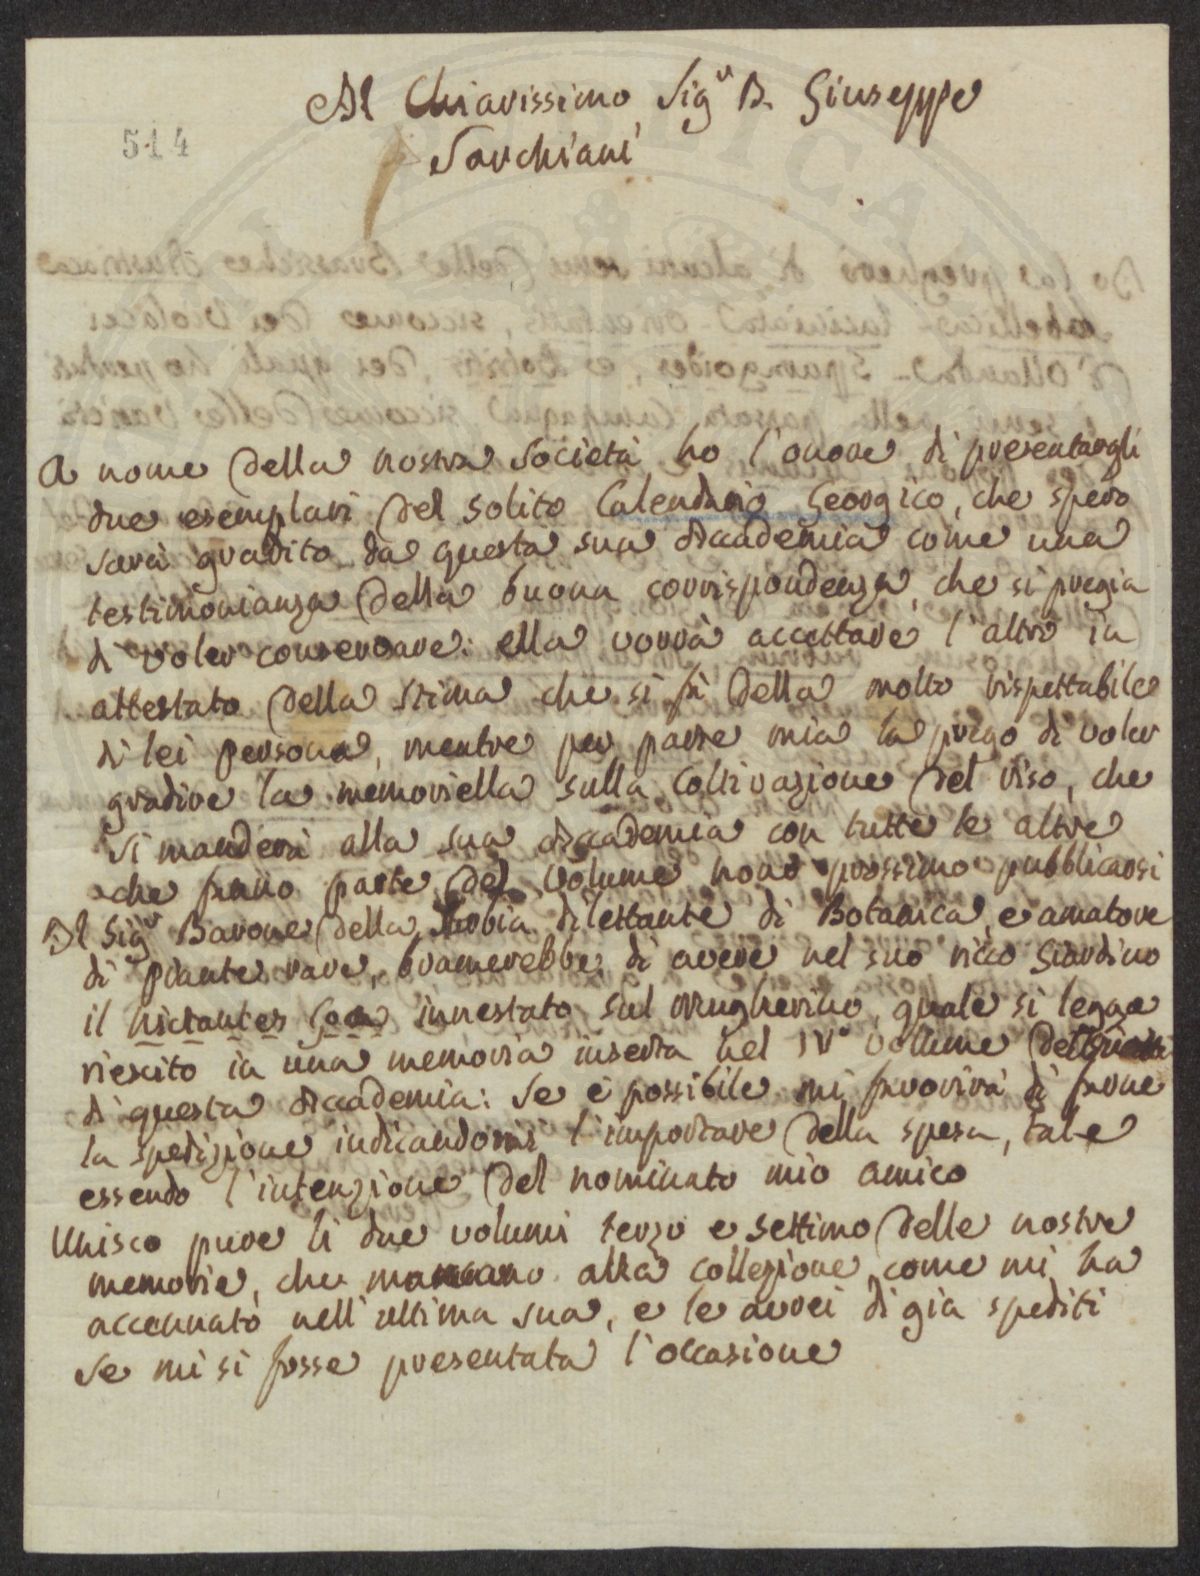 Al Chiarissimo Sig.r D. Giuseppe
Sarchiani
514
A nome della nostra Società ho l'onore di presentargli
due esemplari del solito Calendario Georgico, che spero
sarà gradito da questa sua Accademia come una
testimonianza della buona corrispondenza, che si pregia
di voler conservare: ella vorrà accettare l'altro in
attestato della stima che si fà della molto rispettabile
di lei persona, mentre per parte mia la prego di voler
gradire la memoriella sulla Coltivazione del riso, che
si manderà alla sua Accademia con tutte le altre
che fanno parte del volume nono prossimo pubblicarsi
Il Sig.r Barone della Turbia dilettante di Botanica, e amatore
di piante rare, bramerebbe di avere nel suo ricco Giardino
il nictantes innestato sul mugherino, quale si legge
riescito in una memoria inserta nel IV° volume
di questa Accademia: Se è possibile mi favorirà di farne
la spedizione indicandomi l'importare della spesa, tale
essendo l'intenzione del nominato mio amico
Unisco pure li due volumi terzo e settimo delle nostre
memorie, che mancano alla collezione come mi ha
accennato nell'ultima sua, e le avrei di già spediti
se mi si fosse presentata l'occasione